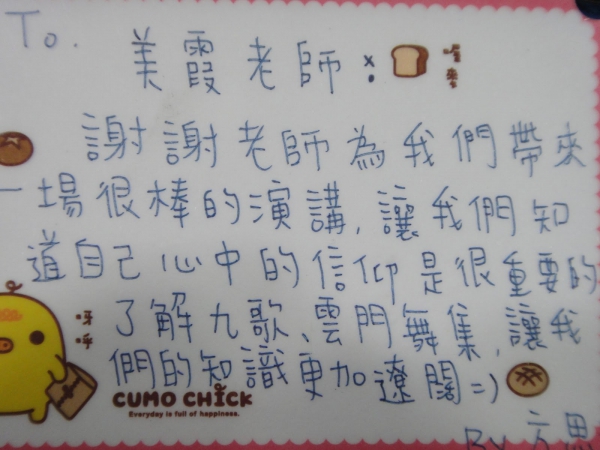 To.
美霞老師：
謝謝老師為我們帶來
一場很棒的演講，讓我們知
道自己心中的信仰是很重要的
了解九歌、雲門舞集，讓我
們的知識更加遼闊=)
CUMO CHICK
Everyday is full of happiness.
By 方思